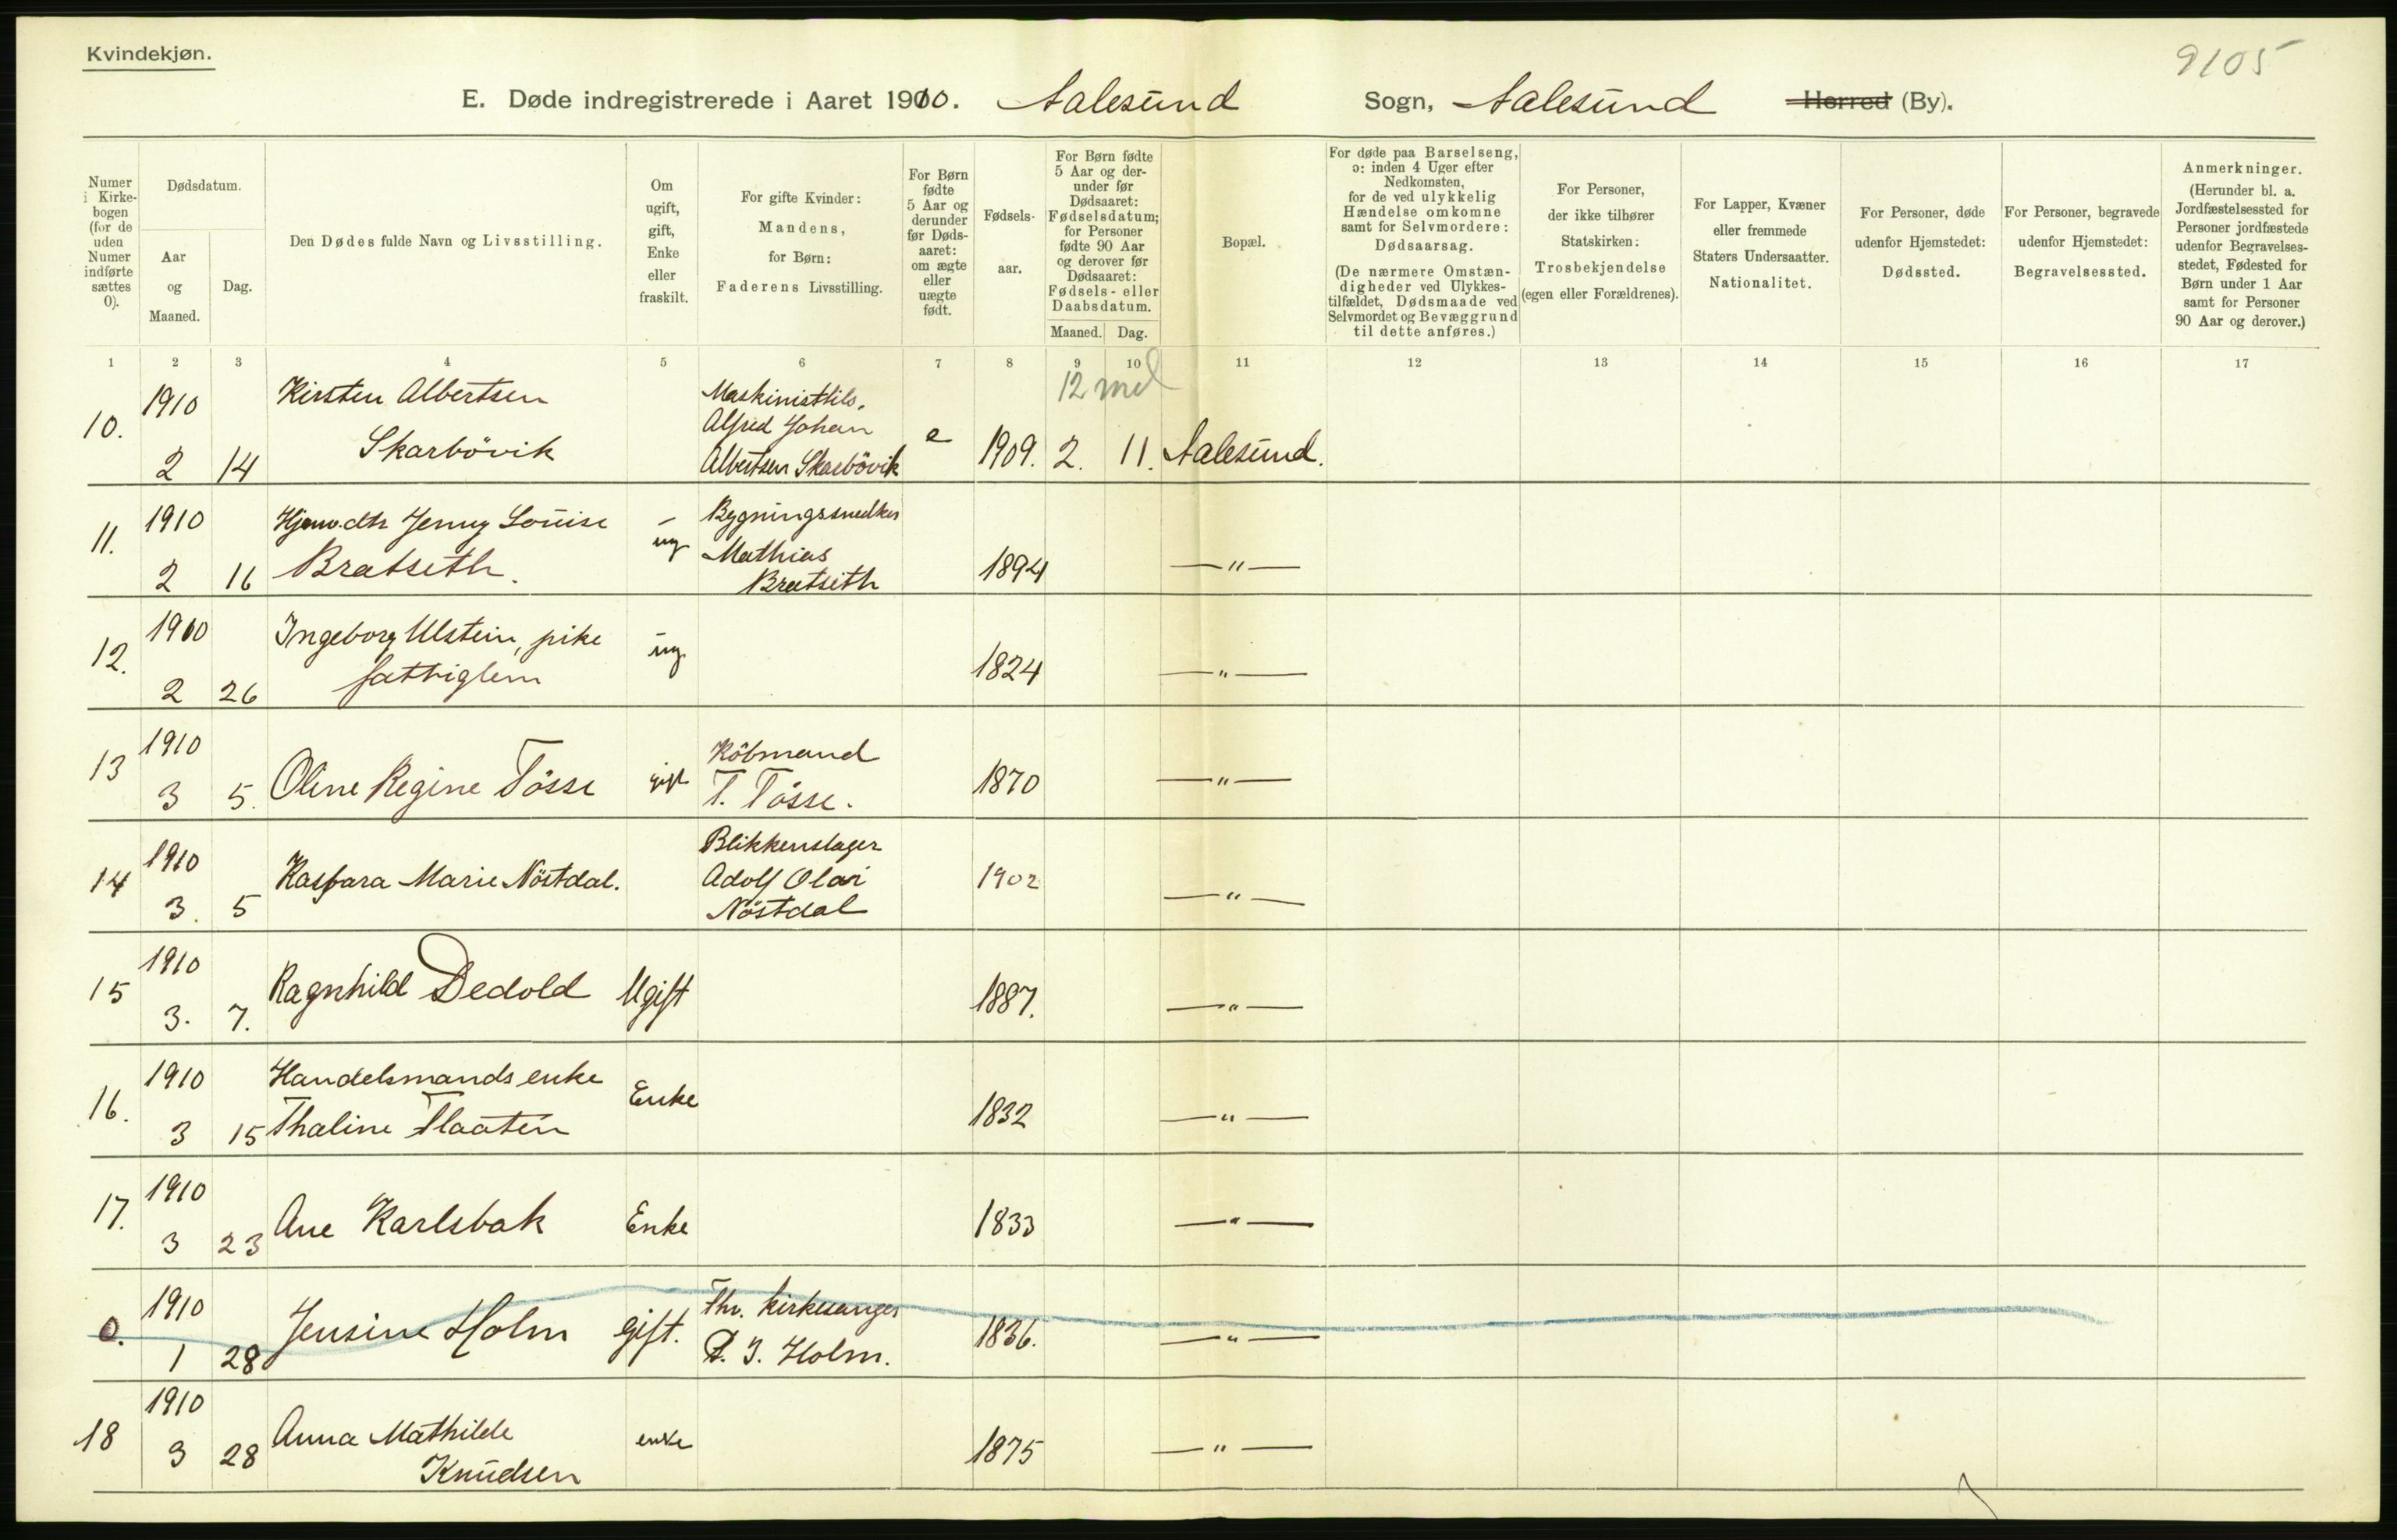 Kvindekjøn.
9105
E. Døde indregistrerede i Aaret 1910. Aalesund Sogn, Aalesund Herred (By).
Numer i Kirkebogen (for de uden Numer indførte sættes 0).
Dødsdatum.
Aar og Maaned.
Dag.
Den Dødes fulde Navn og Livsstilling.
Om ugift, gift, Enke eller fraskilt.
For gifte Kvinder: Mandens, for Børn: Faderens Livsstilling.
For Børn fødte 5 Aar og derunder før Dødsaaret: om ægte eller uægte født.
Fødselsaar.
For Børn fødte 5 Aar og derunder før Dødsaaret: Fødselsdatum; for Personer fødte 90 Aar og derover før Dødsaaret: Fødsels- eller Daabsdatum.
Maaned. Dag.
Bopæl.
For døde paa Barselseng, ɔ: inden 4 Uger efter Nedkomsten, for de ved ulykkelig Hændelse omkomne samt for Selvmordere: Dødsaarsag.
(De nærmere Omstændigheder ved Ulykkestilfældet, Dødsmaade ved Selvmordet og Bevæggrund til dette anføres.)
For Personer, der ikke tilhører Statskirken: Trosbekjendelse (egen eller Forældrenes).
For Lapper, Kvæner eller fremmede Staters Undersaatter. Nationalitet.
For Personer, døde udenfor Hjemstedet: Dødssted.
For Personer, begravede udenfor Hjemstedet: Begravelsessted.
Anmerkninger. (Herunder bl. a. Jordfæstelsessted for Personer jordfæstede udenfor Begravelsesstedet, Fødested for Børn under 1 Aar samt for Personer 90 Aar og derover.)
1 2 3 4 5 6 7 8 9 10 11 12 13 14 15 16 17
12 md
1910 Kirsten Albertsen Maskinisttils.
10. Alfred Johan
2 14 Skarbövik Albertsen Skarbövik e 1909. 2. 11. Aalesund.
1910 Hjemv. dtr Jenny Louise ug Bygningssnedker
11. Mathias
2 16 Bratseth. Bratseth 1894 — " —
1910 Ingeborg Ulstein, pike ug
12.
2 26 fattiglem 1824 — " —
1910 Köbmand
13
3 5. Oline Regine Tösse gift T. Tösse. 1870 — " —
1910 Blikkenslager
14 Kaspara Marie Nöstdal. Adolf Olai 1902
3. 5 Nöstdal — " —
1910
15 Ragnhild Dedold Ugift
3. 7. 1887. — " —
1910 Handelsmands enke Enke
16.
3 15 Thaline Flaaten 1832 — " —
1910
17. Ane Karlsbak Enke
3 23 1833 — " —
1910 Fhv. kirkesanger
0. Jensine Holm gift. 1836. — " —
1 28 P. J. Holm.
1910
18 Anna Mathilde enke
3 28 Knudsen 1875 — " —